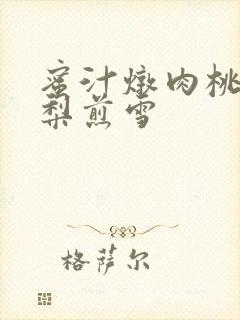 蜜汁燉肉桃
梨煎雪
格萨尔